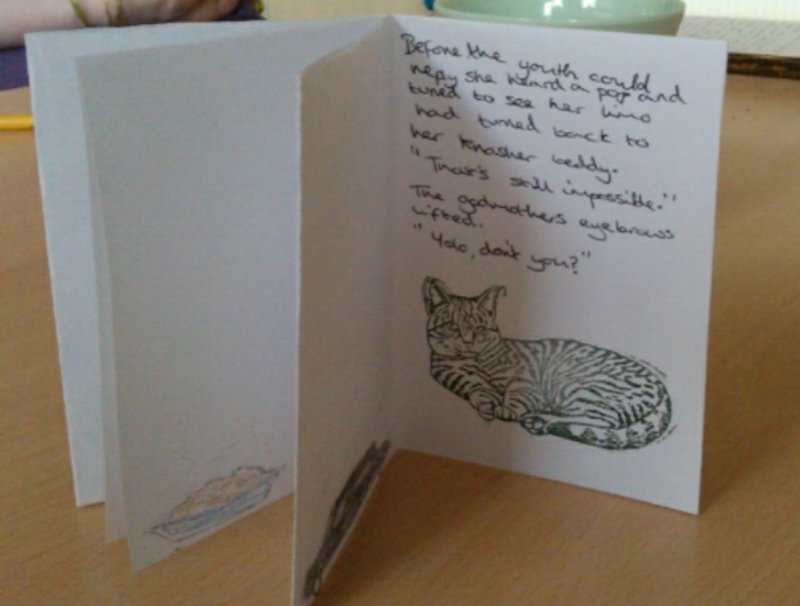 Before the youth could
repy she heard a pop and
turned to see her limo
had turned back to
her knasher beddy.
"That's still impossible."
The godmothers eyebrows
lifted.
"Yolo, don't you?"